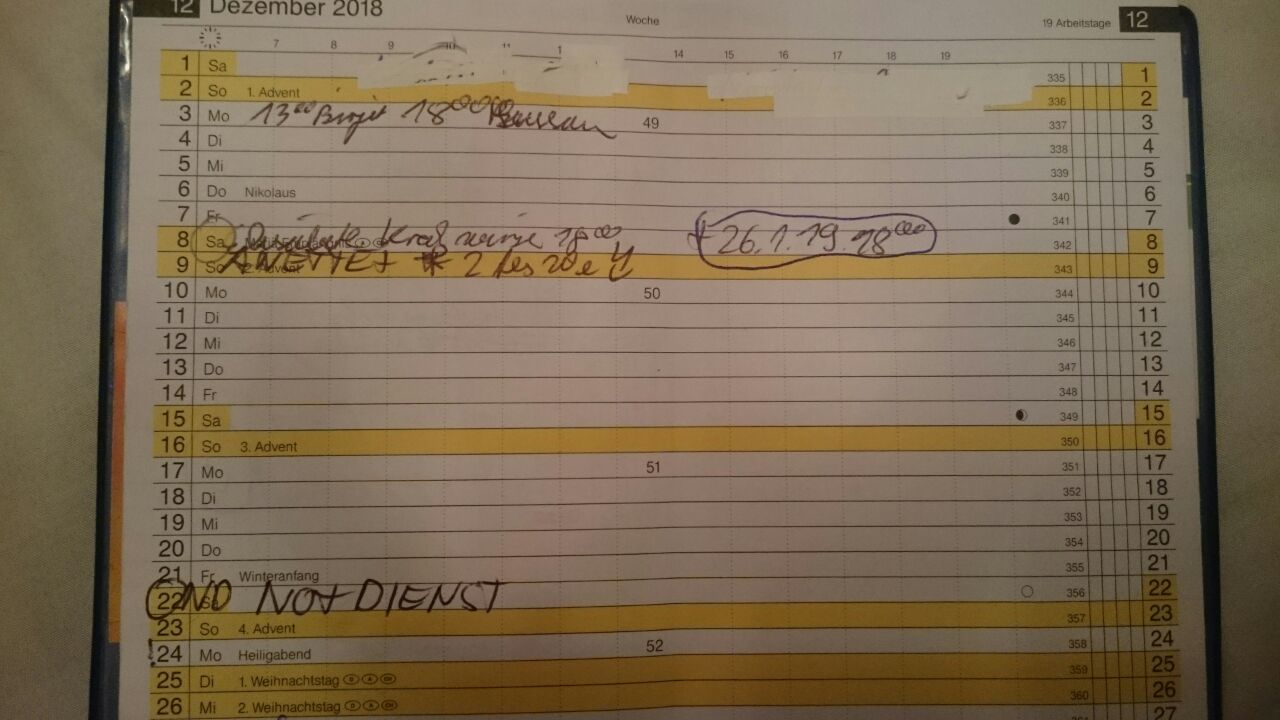 12 Dezember 2018 Woche 19 Arbeitstage 12
7 8 9 10 11 1 14 15 16 17 18 19
1 Sa 335 1
2 So 1. Advent 336 2
3 Mo 13 00 18 00 49 337 3
4 Di 338 4
5 Mi 339 5
6 Do Nikolaus 340 6
7 Fr 341 7
8 Sa 18 00 26.1.19. 18 00 342 8
9 So 2. Advent ANETTE 2 343 9
10 Mo 50 344 10
11 Di 345 11
12 Mi 346 12
13 Do 347 13
14 Fr 348 14
15 Sa 349 15
16 So 3. Advent 350 16
17 Mo 51 351 17
18 Di 352 18
19 Mi 353 19
20 Do 354 20
21 Fr Winteranfang 355 21
22 Sa ND NOtDIENST 356 22
23 So 4. Advent 357 23
!24 Mo Heiligabend 52 358 24
25 Di 1. Weihnachtstag D A CH 359 25
26 Mi 2. Weihnachtstag D A CH 360 26
27